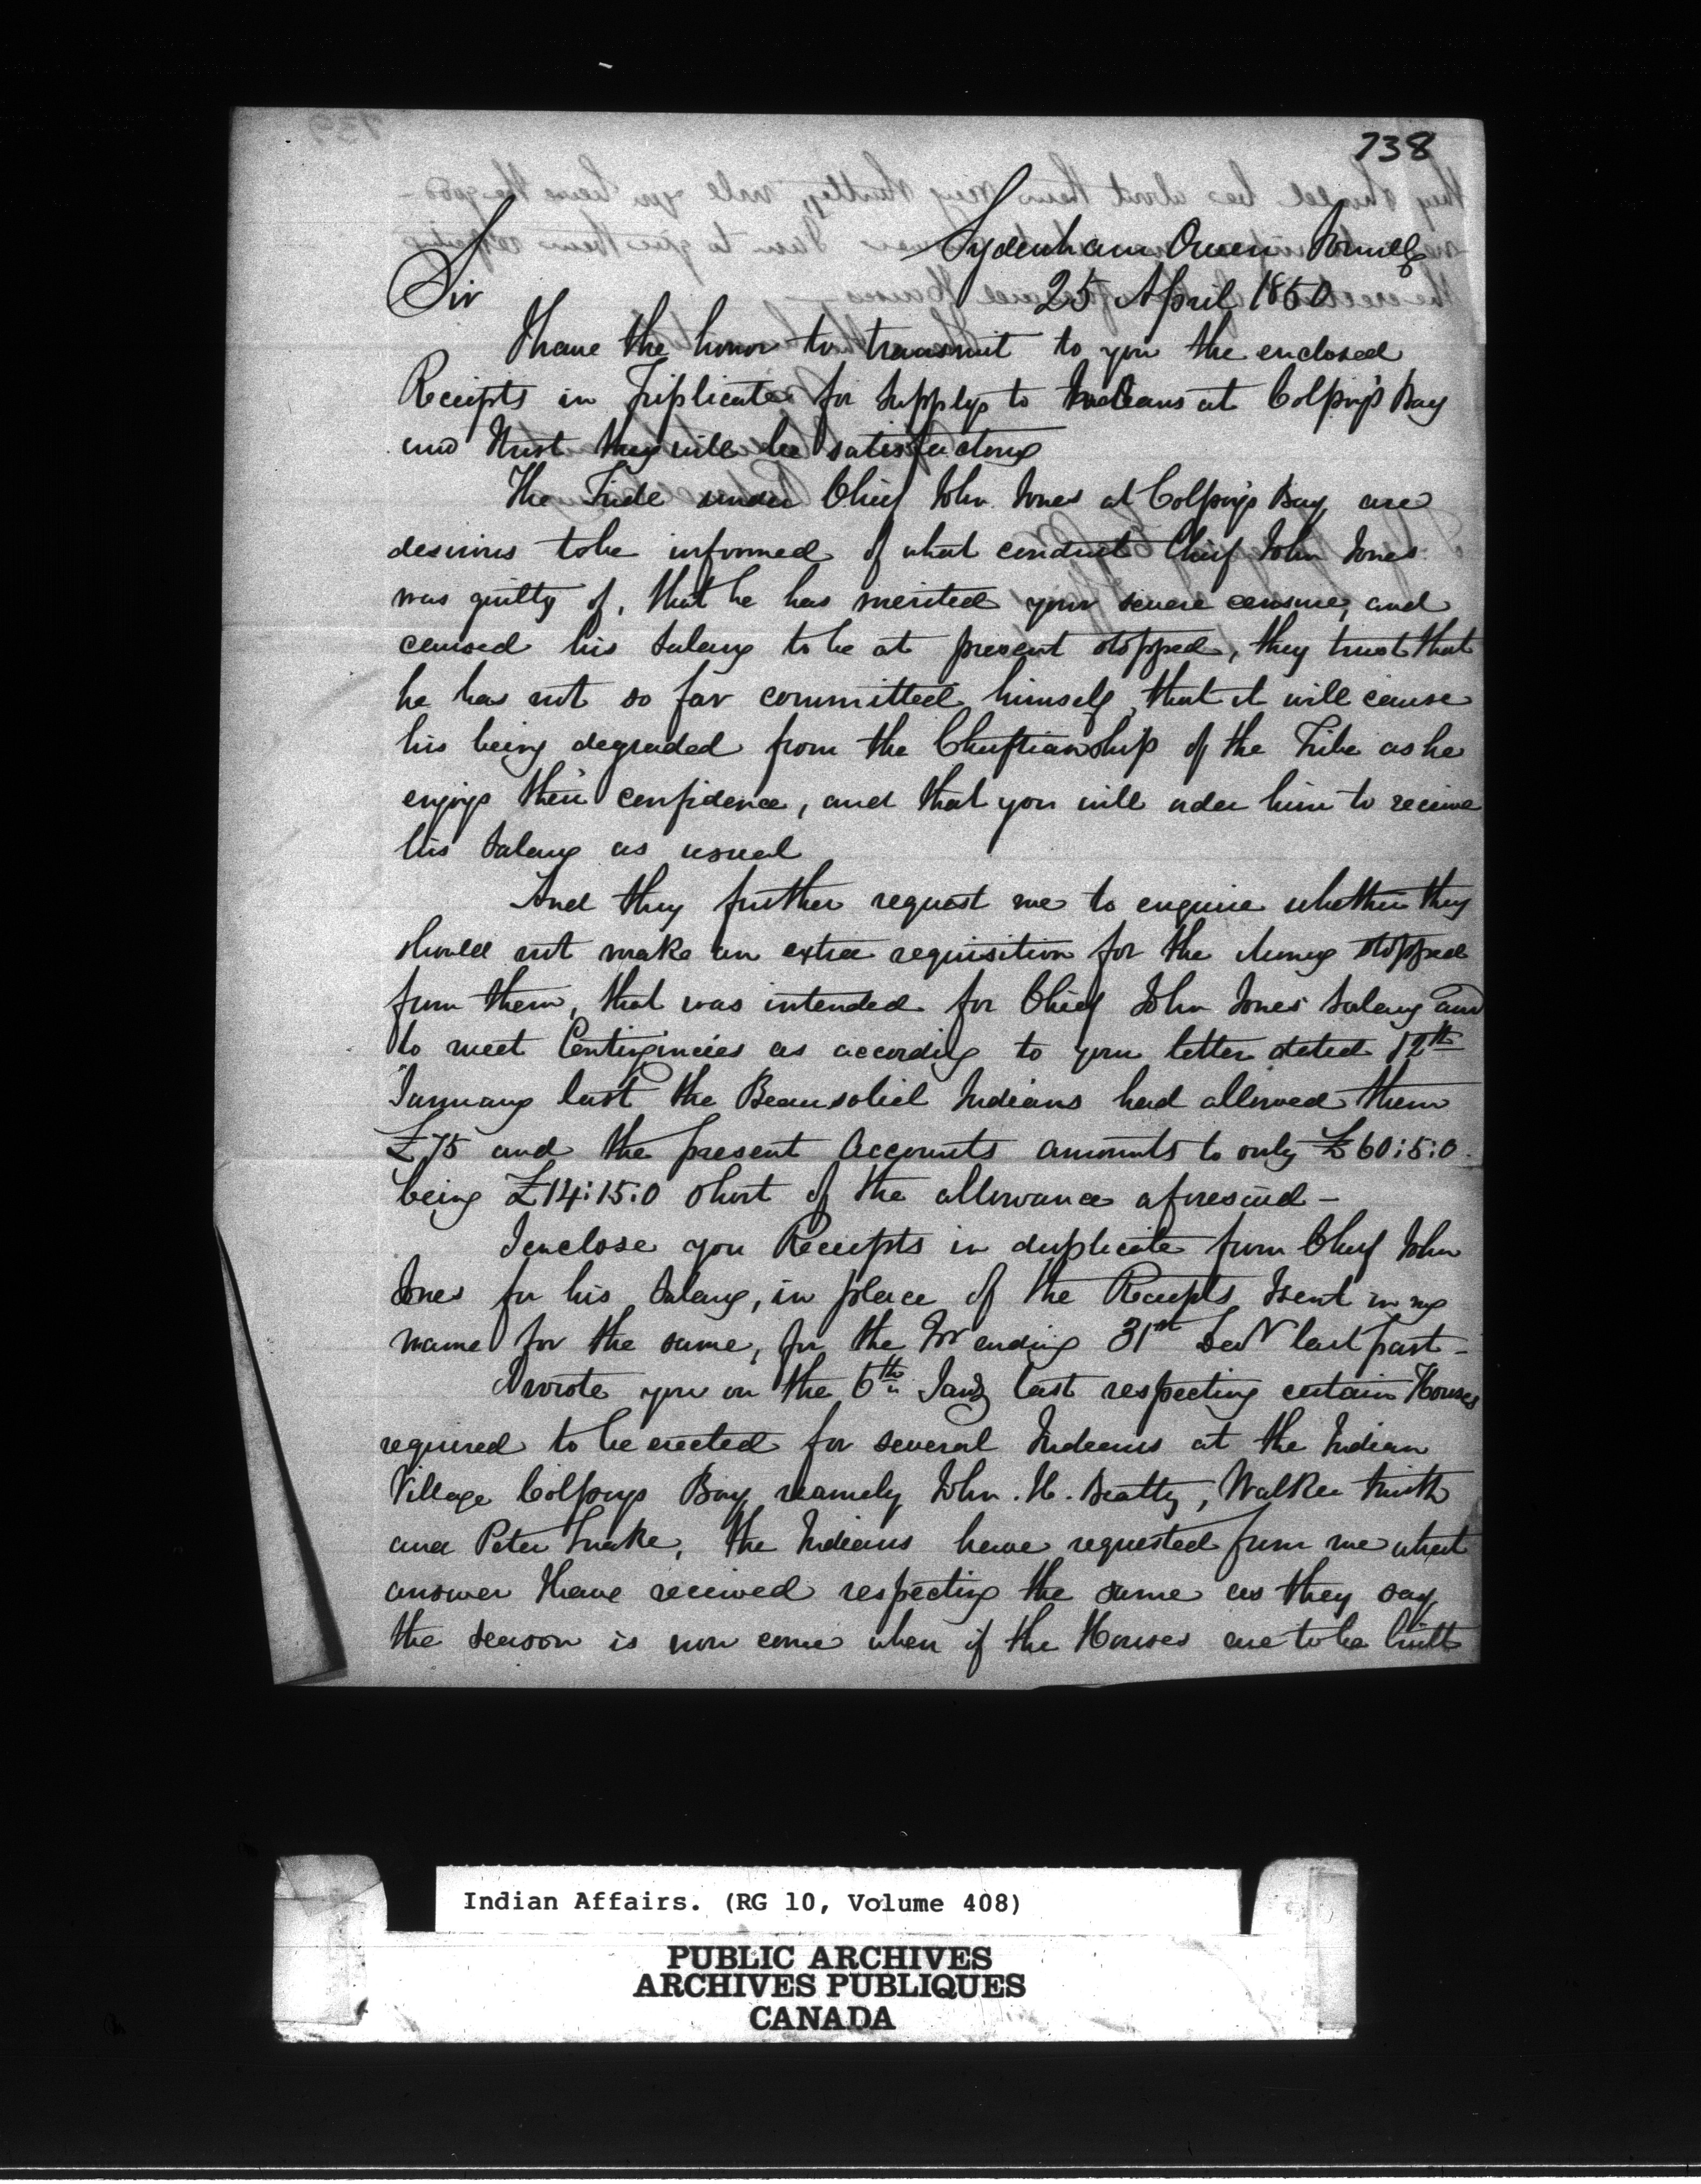 738
Sydenham Owen Sound
Sir 25 April 1850
I have the honor to transmit to you the enclosed
Receipts in Triplicate for Supplys to Indians at Colpoy's Bay
and trust they will be satisfactory
The Tribe under Chief John Jones at Colpoys Bay are
desirous to be informed of what conduct Chief John Jones
was guilty of, that he has merited your severe censure, and
caused his Salary to be at present stopped, they trust that
he has not so far committed himself that it will cause
his being degraded from the Cheiftianship of the Tribe as he
enjoys their confidence, and that you will order him to receive
his Salary as usual
And they further request me to enquire whether they
should not make an extra requisition for the Money stopped
from them, that was intended for Chief John Jones Salary and
to meet Contingincies as according to your letter dated 12th
January last the Beausoliel Indians had allowed them
£75 and the present Accounts amounts to only £60:5:0
being £14:15:0 short of the allowance aforesaid -
I enclose you Receipts in duplicate from Chief John
Jones for his Salary, in place of the Receipts I sent in my
name for the same, for the Qr ending 31st Decr last past -
I wrote you on the 6th Jany last respecting certain Houses
required to be erected for several Indians at the Indian
Village Colpoys Bay namely John. H. Beatty, Walker Smith
and Peter Snake, the Indians have requested from me what
answer I have received respecting the same as they say
the season is now come when if the Houses are to be built
Indian Affairs. (RG 10, Volume 408)
PUBLIC ARCHIVES
ARCHIVES PUBLIQUES
CANADA